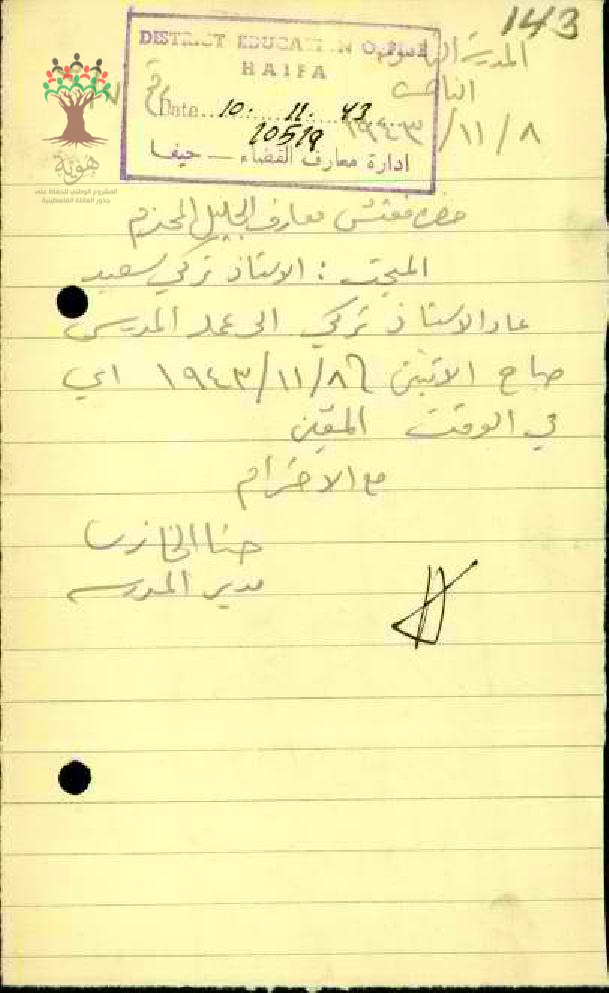 143
DISTRICT EDUCATION OFFICE
HAIFA
Date.. 10. 11. 43
20519
ادارة معارف القضاء — حيفا
المدرسة
الناصرة
رقم
١٩٤٣/١١/٨
هوية
المشروع الوطني للحفاظ على
جذور العائلة الفلسطينية
حضرة مفتش معارف الجليل المحترم
المبحث : الاستاذ تركي سعيد
عاد الاستاذ تركي الى عمله المدرسي
صباح الاثنين ١٩٤٣/١١/٨ اي
في الوقت المعين
مع الاحترام
حنا الخازن
مدير المدرسه